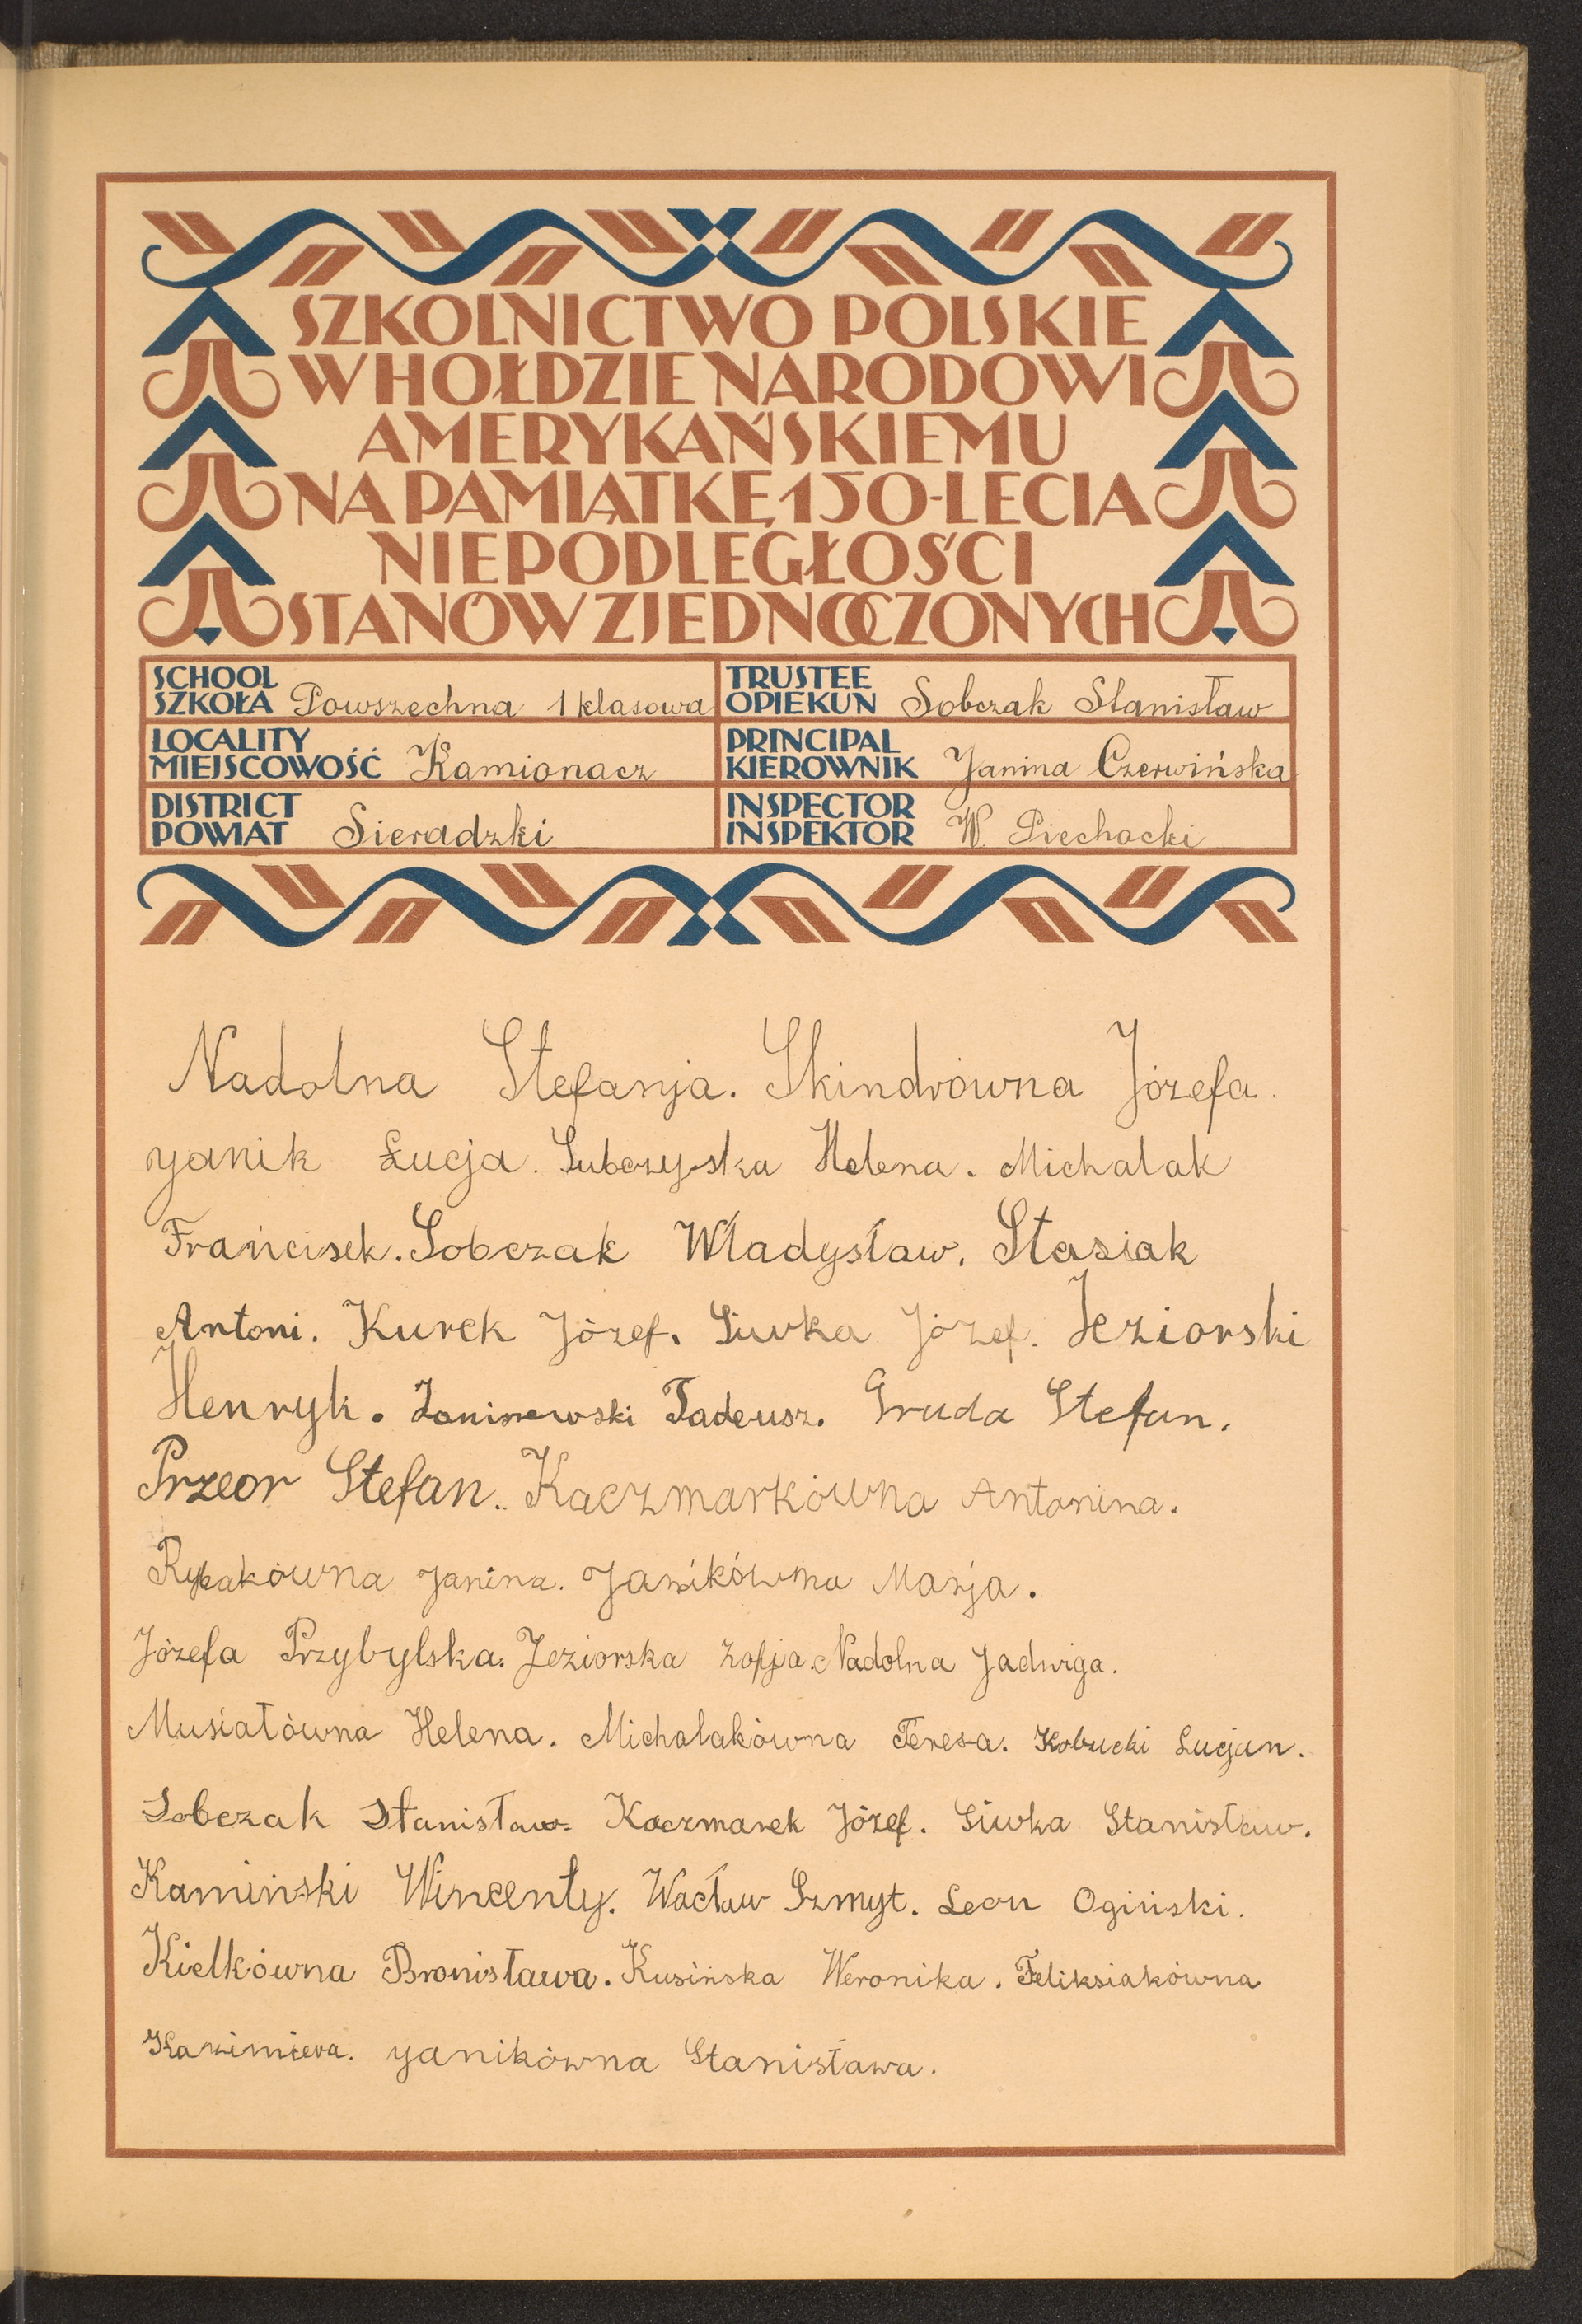 SZKOLNICTWO POLSKIE
W HOŁDZIE NARODOWI
AMERYKAŃSKIEMU
NA PAMIĄTKĘ 150-LECIA
NIEPODLEGŁOŚCI
STANÓW ZJEDNOCZONYCH
SCHOOL
SZKOŁA Powszechna 1 klasowa
TRUSTEE
OPIEKUN Sobczak Stanisław
LOCALITY
MIEJSCOWOŚĆ Kamionacz
PRINCIPAL
KIEROWNIK Janina Czerwińska
DISTRICT
POWIAT Sieradzki
INSPECTOR
INSPEKTOR W. Piechocki
Nadolna Stefanja. Skindrówna Józefa.
Janik Łucja. Subczyska Helena. Michalak
Frańcisek. Sobczak Władysław. Stasiak
Antoni. Kurek Józef. Siwka Józef. Jeziorski
Henryk. Janiszewski Tadeusz. Gruda Stefan.
Przeor Stefan.. Kaczmarkówna Antonina.
Rybakówna Janina. Janikówna Marja.
Józefa Przybylska. Jeziorska Zofja. Nadolna Jadwiga.
Musiałówna Helena. Michalakówna Teresa. Kobucki Lucjan.
Sobczak Stanisław. Kaczmarek Józef. Siwka Stanisław.
Kamiński Wincenty. Wacław Szmyt. Leon Ogiński.
Kielkówna Bronisława. Kusińska Weronika. Feliksiakówna
Kazimiera. Janikówna Stanisława.